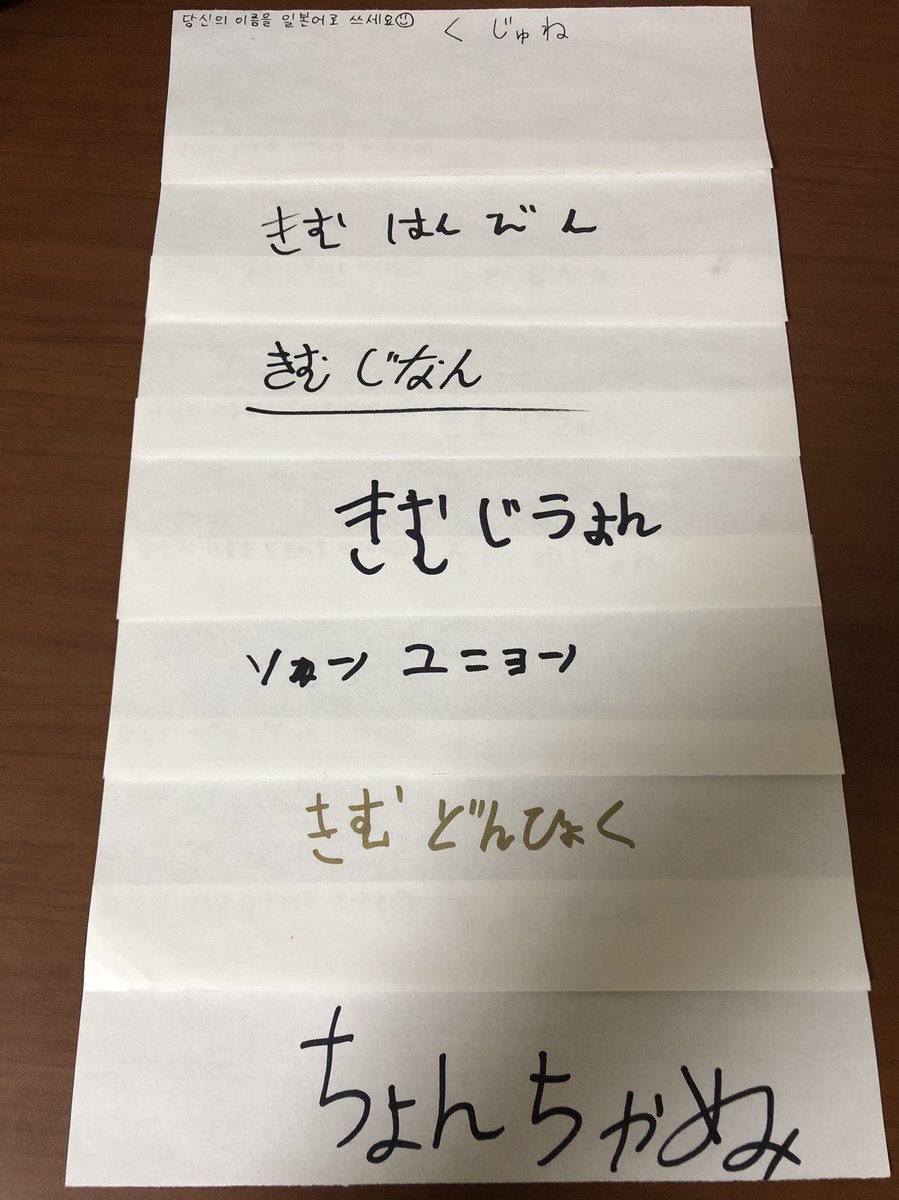 당신의 이름을 일본어로 쓰세요☺ く じゅね
きむ はんびん
きむ じなん
きむ じうょん
ソホン ユニョン
きむ どんひょく
ちょんちがぬ